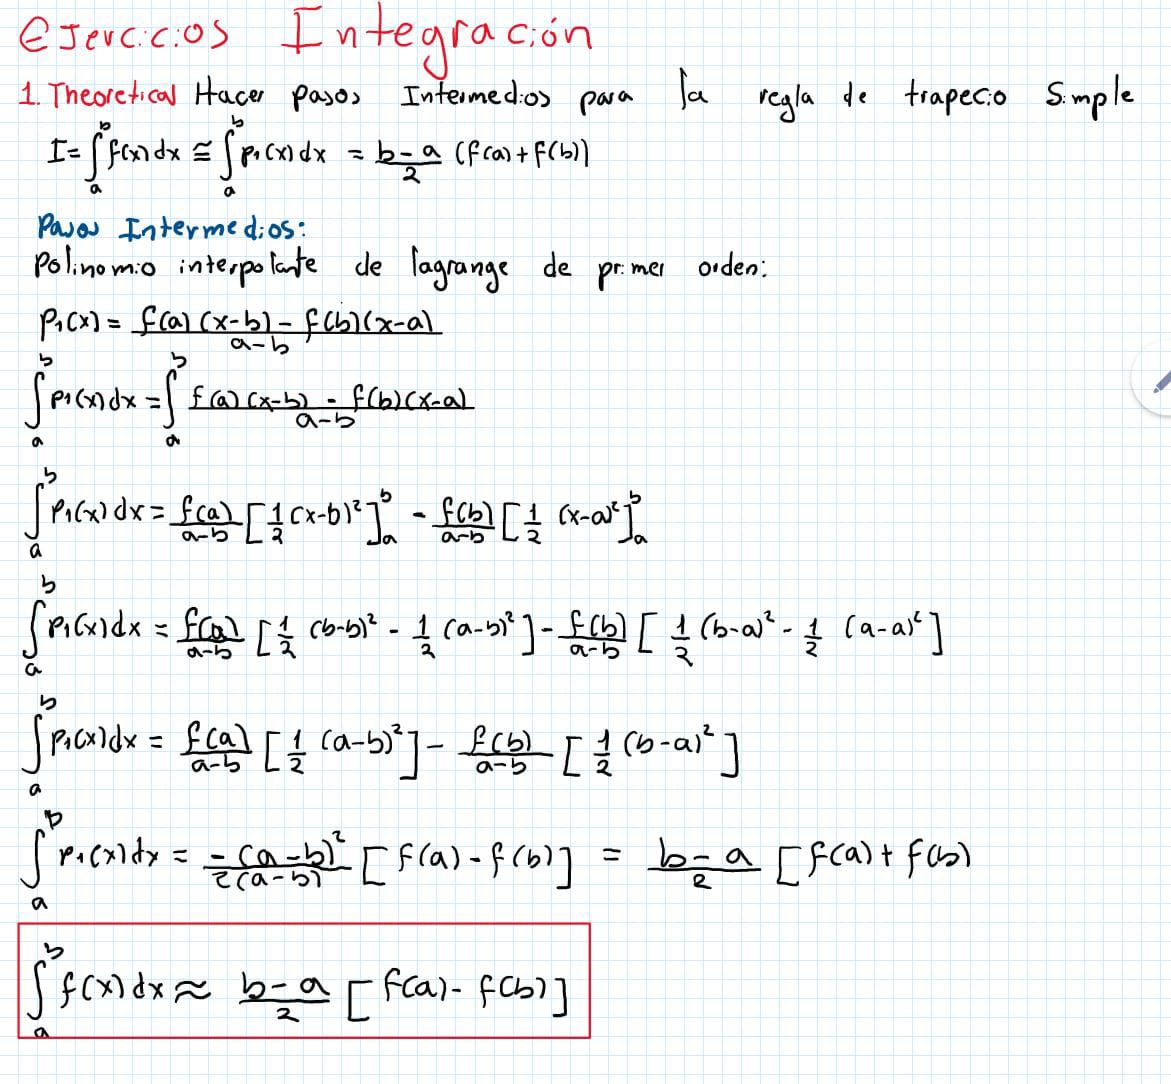 Ejercicios Integración
1. Theoretical Hacer pasos Intermedios para la regla de trapecio Simple
I = ∫_a^b f(x) dx ≅ ∫_a^b p₁(x) dx = \frac{b-a}{2} (f(a) + f(b))
Pasos Intermedios:
Polinomio interpolante de lagrange de primer orden:
p₁(x) = \frac{f(a)(x-b) - f(b)(x-a)}{a-b}
∫_a^b p₁(x) dx = ∫_a^b \frac{f(a)(x-b) - f(b)(x-a)}{a-b}
∫_a^b p₁(x) dx = \frac{f(a)}{a-b} [\frac{1}{2}(x-b)²]_a^b - \frac{f(b)}{a-b} [\frac{1}{2}(x-a)²]_a^b
∫_a^b p₁(x) dx = \frac{f(a)}{a-b} [\frac{1}{2}(b-b)² - \frac{1}{2}(a-b)²] - \frac{f(b)}{a-b} [\frac{1}{2}(b-a)² - \frac{1}{2}(a-a)²]
∫_a^b p₁(x) dx = \frac{f(a)}{a-b} [\frac{1}{2}(a-b)²] - \frac{f(b)}{a-b} [\frac{1}{2}(b-a)²]
∫_a^b p₁(x) dx = \frac{-(a-b)²}{2(a-b)} [f(a) - f(b)] = \frac{b-a}{2} [f(a) + f(b)
∫_a^b f(x) dx ≈ \frac{b-a}{2} [f(a) - f(b)]